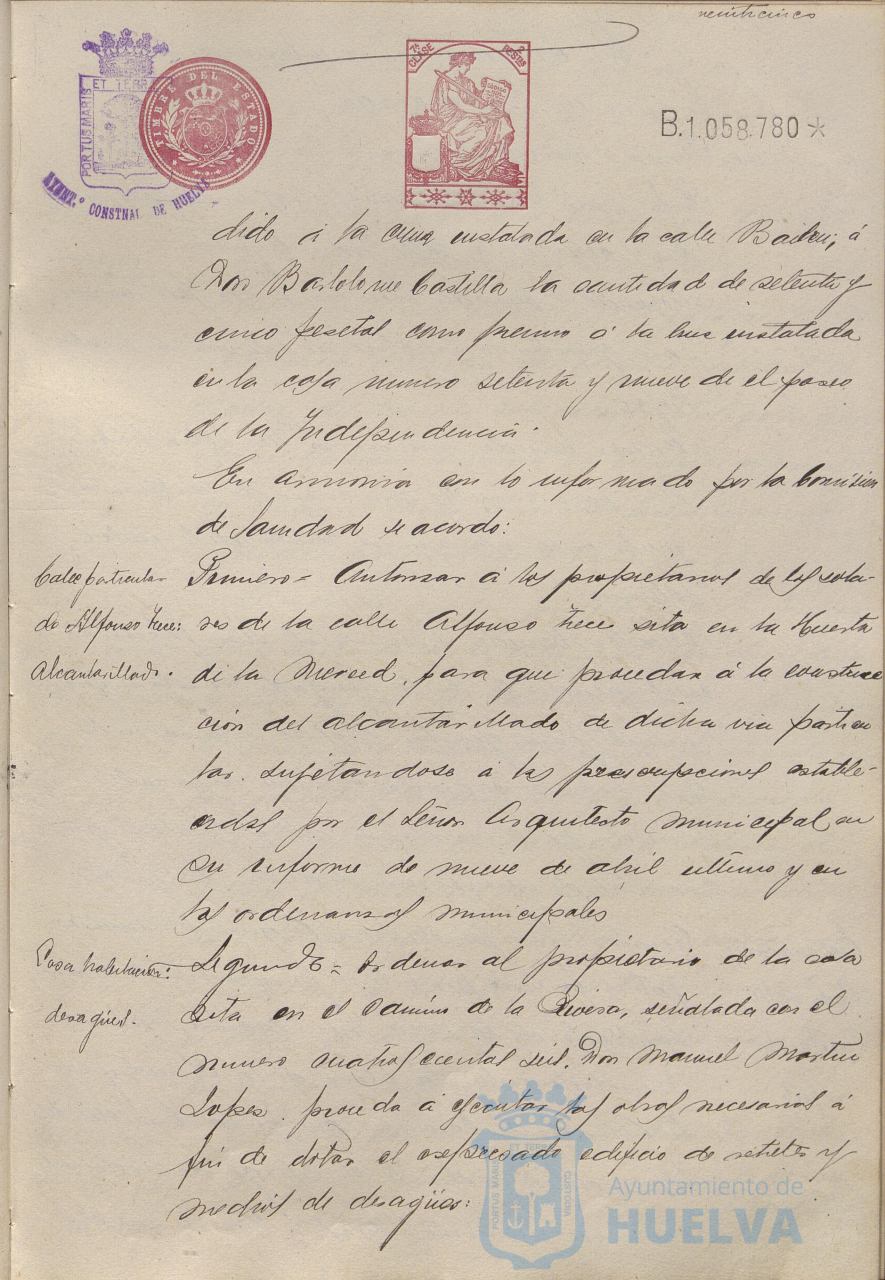 veinticinco
PORTUS MARIS ET TERR
AYNT.º CONSTNAL DE HUELVA
TIMBRE DEL ESTADO
7ª CLASE 2 PESTAS
B.1.058.780*
dido á la cruz instalada en la calle Bailen; á
Don Bartolome Castilla la cantidad de setenta y
cinco pesetas como premio á la cruz instalada
en la casa numero setenta y nueve de el paseo
de la Independencia.
En armonia con lo informado por la Comision
de Sanidad se acordo:
Calle particular
de Alfonso trece:
Alcantarillado.
Primero = Autorizar á los propietarios de los sola-
res de la calle Alfonso trece sita en la Huerta
de la Merced, para que procedan á la construc
ción del alcantarillado de dicha via particu
lar, sujetandose á las prescripciones estable-
cidas por el Señor Arquitecto municipal en
su informe de nueve de abril ultimo y en
las ordenanzas municipales
Casa habitacion:
desagües.
Segundo = Ordenar al propietario de la casa
sita en el Camino de la Rivera, señalada con el
numero cuatrocientos seis, Don Manuel Martin
Lopez, proceda á ejecutar las obras necesarias á
fin de dotar el expresado edificio de retretes y
medios de desagües:
PORTUS MARIS ET TERRAE CUSTODIA
Ayuntamiento de
HUELVA